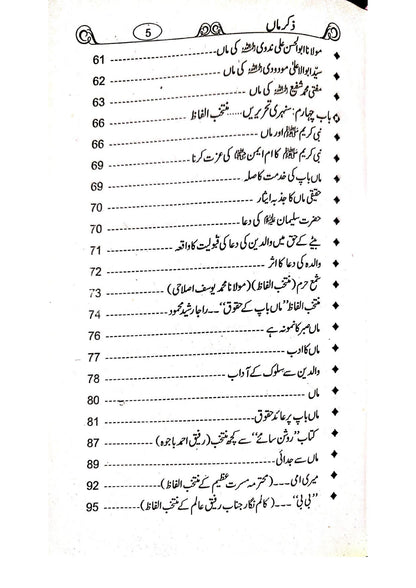 ذکر ماں
5
مولانا ابوالحسن علی ندوی رحمہ اللہ کی ماں 61
سید ابوالاعلیٰ مودودی رحمہ اللہ کی ماں 62
مفتی محمد شفیع رحمہ اللہ کی ماں 63
باب چہارم: سنہری تحریریں……منتخب الفاظ 66
نبی کریم ﷺ اور ماں 66
نبی کریم ﷺ کا ام ایمن کی عزت کرنا 69
ماں باپ کی خدمت کا صلہ 69
حقیقی ماں کا جذبہ ایثار 70
حضرت سلیمان علیہ السلام کی دعا 70
بیٹے کے حق میں والدین کی دعا کی قبولیت کا واقعہ 71
والدہ کی دعا کا اثر 72
شمع حرم (منتخب الفاظ) (مولانا محمد یوسف اصلاحی) 73
منتخب الفاظ ”ماں باپ کے حقوق“ ۔۔۔ راجا رشید محمود 74
ماں صبر کا نمونہ ہے 76
ماں کا ادب 77
والدین سے سلوک کے آداب 78
ماں 80
ماں باپ پر عائد حقوق 81
کتاب ”روشن سائے“ سے کچھ منتخب (رفیق احمد باجوہ) 87
ماں سے جدائی 89
میری امی ۔۔۔ (محترمہ مسرت عظیم کے منتخب الفاظ) 92
”بی بی“ ۔۔۔ (کالم نگار جناب رفیق عالم کے منتخب الفاظ) 95